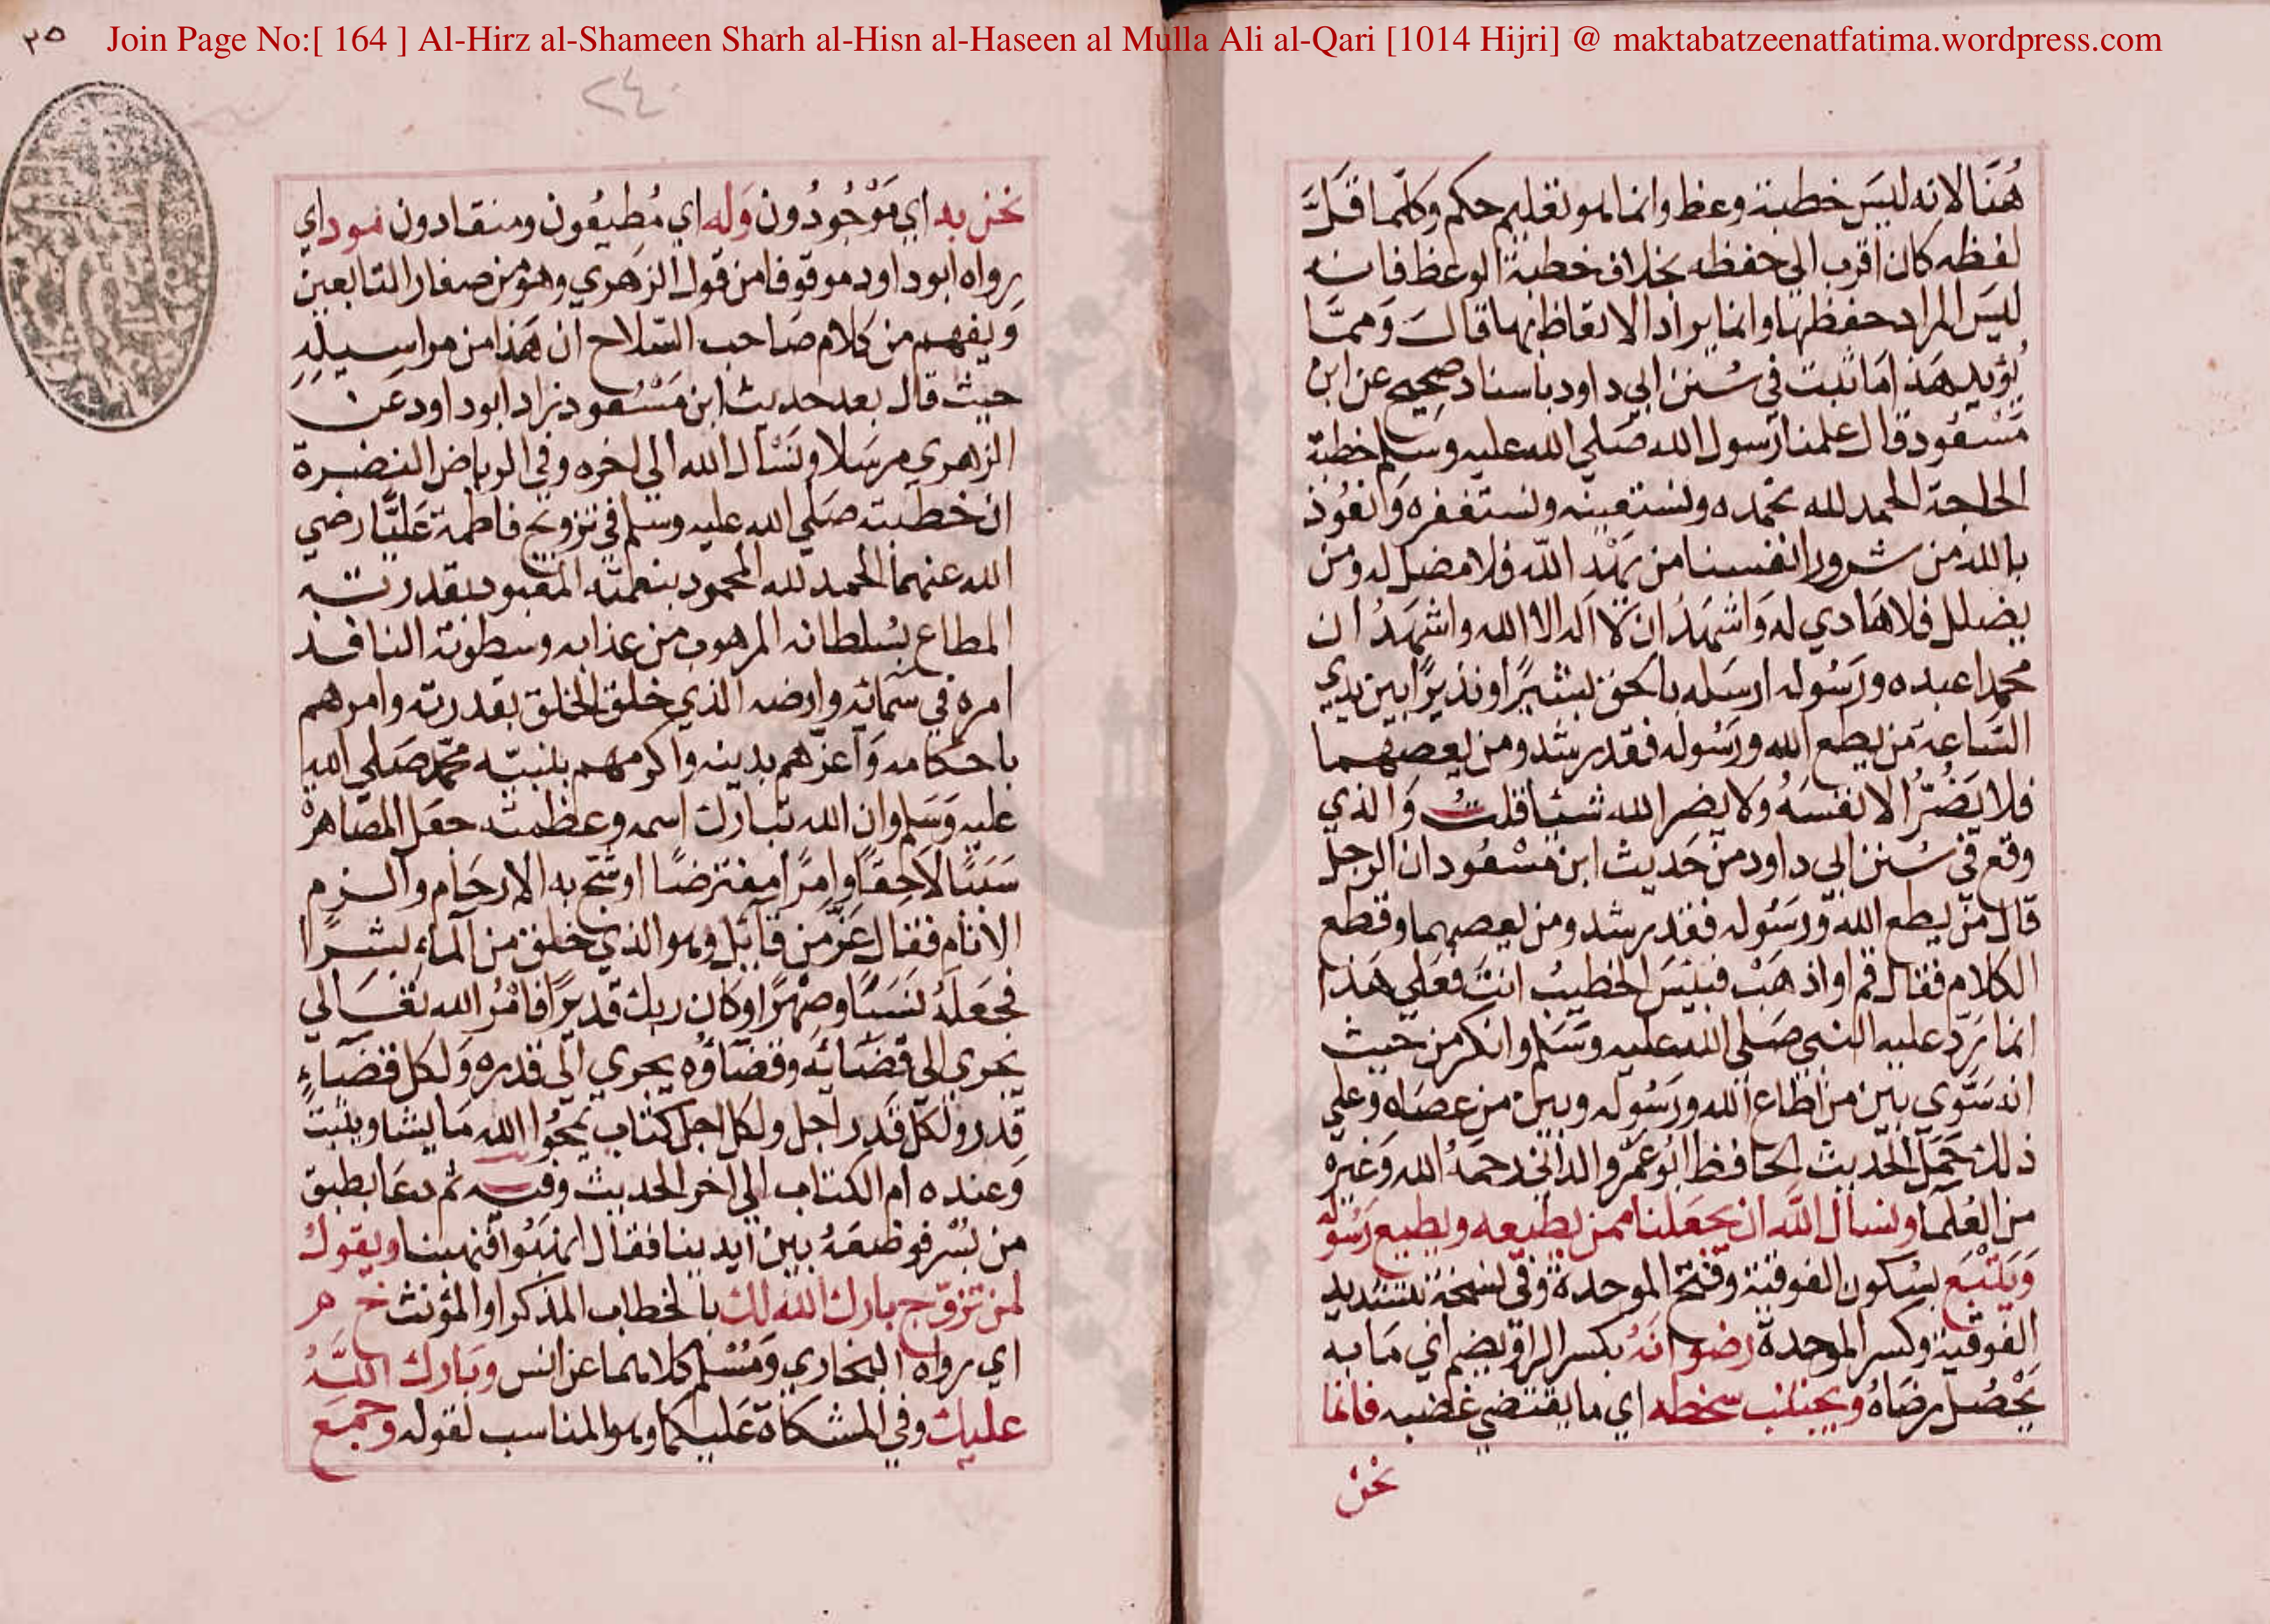 Join Page No:[ 164 ] Al-Hirz al-Shameen Sharh al-Hisn al-Haseen al Mulla Ali al-Qari [1014 Hijri] @ maktabatzeenatfatima.wordpress.com
٢٥
٢٤
هُنَا لانه ليسَ خطبة وعظ وانما هو تعليم حكم وكلّما قَلَّ
لفظه كان اقرب الى حفظه بخلاف خطبة الوعظ فانه
ليسَ المراد حفظها وانما يراد الاتعاظ بها قالَ وَممَّا
يُؤيد هَذا مَا ثبت في سُنن ابي داود باسناد صحيح عن ابن
مَسْعُود قال علمنا رسول الله صَلي الله عليه وسلم خطبة
الحاجة الحمد لله نحمده ونستعينه ونستغفره وَنعُوذ
بالله من شرور انفسنا من يَهْد الله فلا مضل له ومن
يضلل فلا هَادي له وَاشهَدُ ان لا اله الا الله واشهَدُ ان
محمدا عبده ورَسُوله ارسَله بالحق بشيرًا ونذيرًا بين يدي
السَاعة مَن يطع الله ورَسُوله فقد رشد ومن يعصهما
فلا يَضُرُّ الا نفسَهُ ولا يضر الله شيئا قلتُ وَالذي
وقع في سُنن ابي داود من حَديث ابن مَسْعُود ان الرجل
قال مَن يطع الله ورَسُوله فقد رشد ومن يعصهما وقطع
الكلام فقال قم او اذهَبْ فبئسَ الخطيبُ انتَ فعَلى هَذا
انما رَدّ عليه النبي صَلى الله عليه وسَلم وانكر من حَيث
انه سَوّى بين من اطاع الله ورَسُوله وبين من عصَاه وعلى
ذلك حَمَل الحَديث الحَافظ ابُو عَمْرو الدانى رحمَهُ الله وَغيره
من العُلمَا ونسأل الله ان يجعَلنا ممن يطيعه ويطيع رَسُوله
وَيَتْبَع بسُكون الفوقية وفتح الموحدة وفي نسخة بتشديد
الفوقية وكسر الموحدة رضوانَهُ بكسر الرا ويضم اي مَا به
يَحْصُل رضَاهُ ويجتنب سخطه اي ما يقتضي غضبه فانما
نحن
نحن به اي مَوْجُودُون وَله اي مُطيعُون ومنقادون مود اي
رواه ابوداود موقوفا من قول الزهري وهو من صغار التابعين
وَيفهم من كلام صَاحب السّلاح ان هَذا من مراسيله
حيث قال بعد حديث ابن مَسْعُود زاد ابوداود عَن
الزهري مرسَلا ونَسْأل الله الى اخره وفي الرياض النضرة
ان خطبته صَلي الله عليه وسلم في تزويج فاطمة عَليًّا رضي
الله عنهما الحمد لله المحمود بنعمته المعبود بقدرته
المطاع بسُلطانه المرهوب من عذابه وسطوته النافذ
امره في سَمَائه وارضه الذي خلق الخلق بقدرته وامرهم
باحكامه وَاَعزّهم بدينه واكرمهم بنبيّه محمّد صَلى الله
عليه وَسَلم وان الله تبارك اسمه وعظمته جعَل المصَاهرة
سَبَبًا لاَحِقًا وامرًا مفترضًا اوشج به الارحَام والزم
الانام فقال عَزّ مَن قآئل وهو الذي خلق من المآء بشرًا
فجَعَلَهُ نسَبًا وصِهْرًا وكان ربك قديرًا فامْرُ الله تعَالي
يجري الى قضَائه وقضَاؤُه يجري الى قدره وَلكل قضَاءٍ
قدر ولكل قَدر اجل ولكل اجل كتاب يمحُوا الله مَا يشا ويثبت
وَعنده ام الكتاب الى اخر الحديث وفيه ثم دعَا بطبق
من بُسْر فوضعَهُ بين ايدينا فقال انهَبُوا فنهبنا ويقول
لمن تزوّج بارك الله لك بالخطاب المذكر او المؤنث خ م
اي رواه البخاري وَمُسْلم كلاهما عن انس وبَارك اللّهُ
عليك وفي المشكاة عَليكما وهو المناسب لقوله وجمعَ